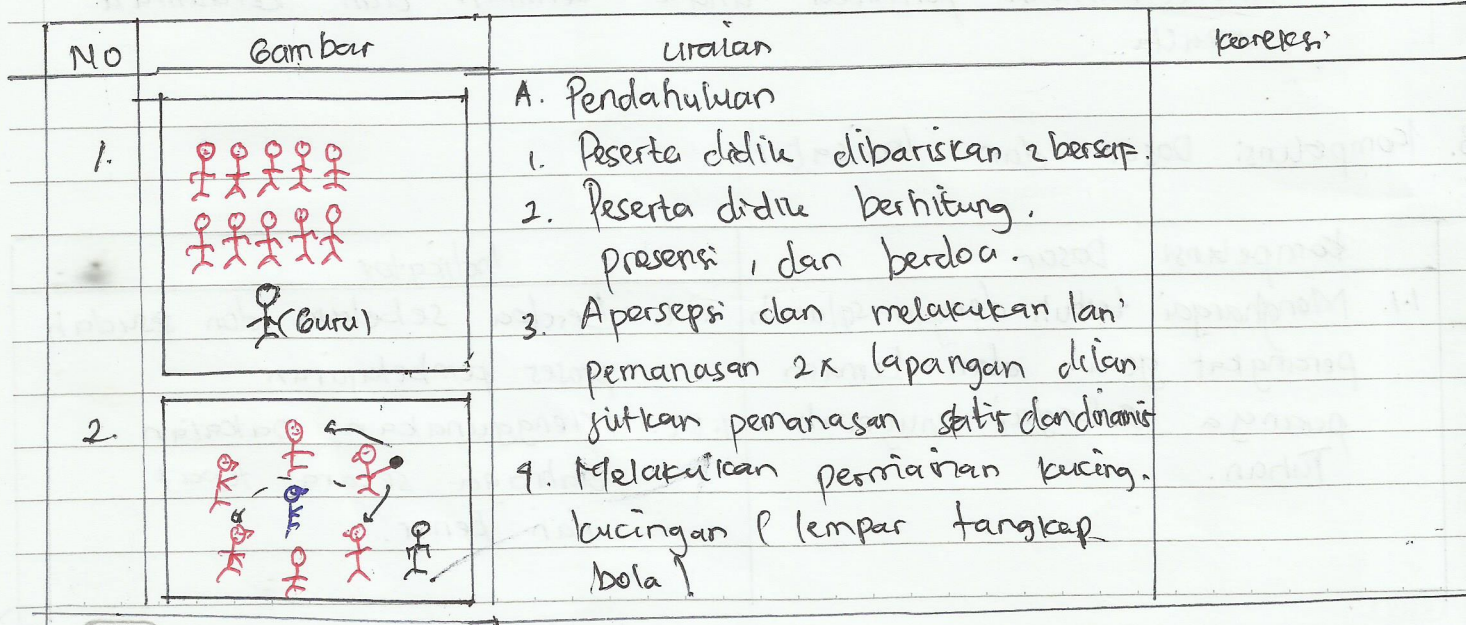 No Gambar uraian koreksi
A. Pendahuluan
1. 1. Peserta didik dibariskan 2 bersaf.
2. Peserta didik berhitung.
presensi, dan berdoa.
(Guru) 3. Apersepsi dan melakukan lari
pemanasan 2x lapangan dilan
jutkan pemanasan statis dan dinamis
2. 4. Melakukan permainan kucing.
kucingan (lempar tangkap
bola)